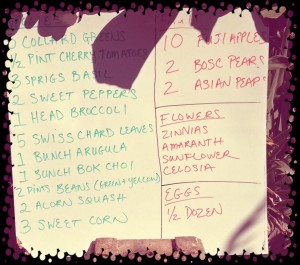 COLLARD GREENS
½ PINT CHERRY TOMATOES
3 SPRIGS BASIL
2 SWEET PEPPERS
1 HEAD BROCCOLI
5 SWISS CHARD LEAVES
1 BUNCH ARUGULA
1 BUNCH BOK CHOI
2 PINTS BEANS (GREEN + YELLOW)
2 ACORN SQUASH
3 SWEET CORN
10 FUJI APPLES
2 BOSC PEARS
2 ASIAN PEARS
FLOWERS
ZINNIAS
AMARANTH
SUNFLOWER
CELOSIA
EGGS
½ DOZEN